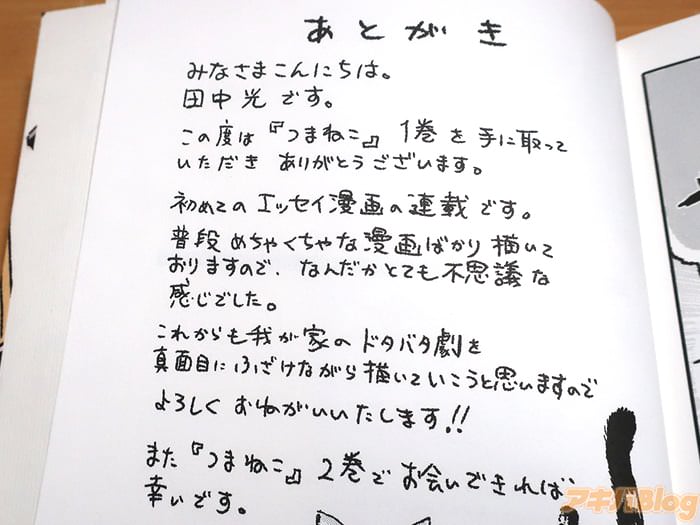 あとがき
みなさまこんにちは。
田中光です。
この度は『つまねこ』1巻を手に取って
いただきありがとうございます。
初めてのエッセイ漫画の連載です。
普段めちゃくちゃな漫画ばかり描いて
おりますので、なんだかとても不思議な
感じでした。
これからも我が家のドタバタ劇を
真面目にふざけながら描いていこうと思いますので
よろしくおねがいいたします!!
また『つまねこ』2巻でお会いできれば
幸いです。
アキバBlog